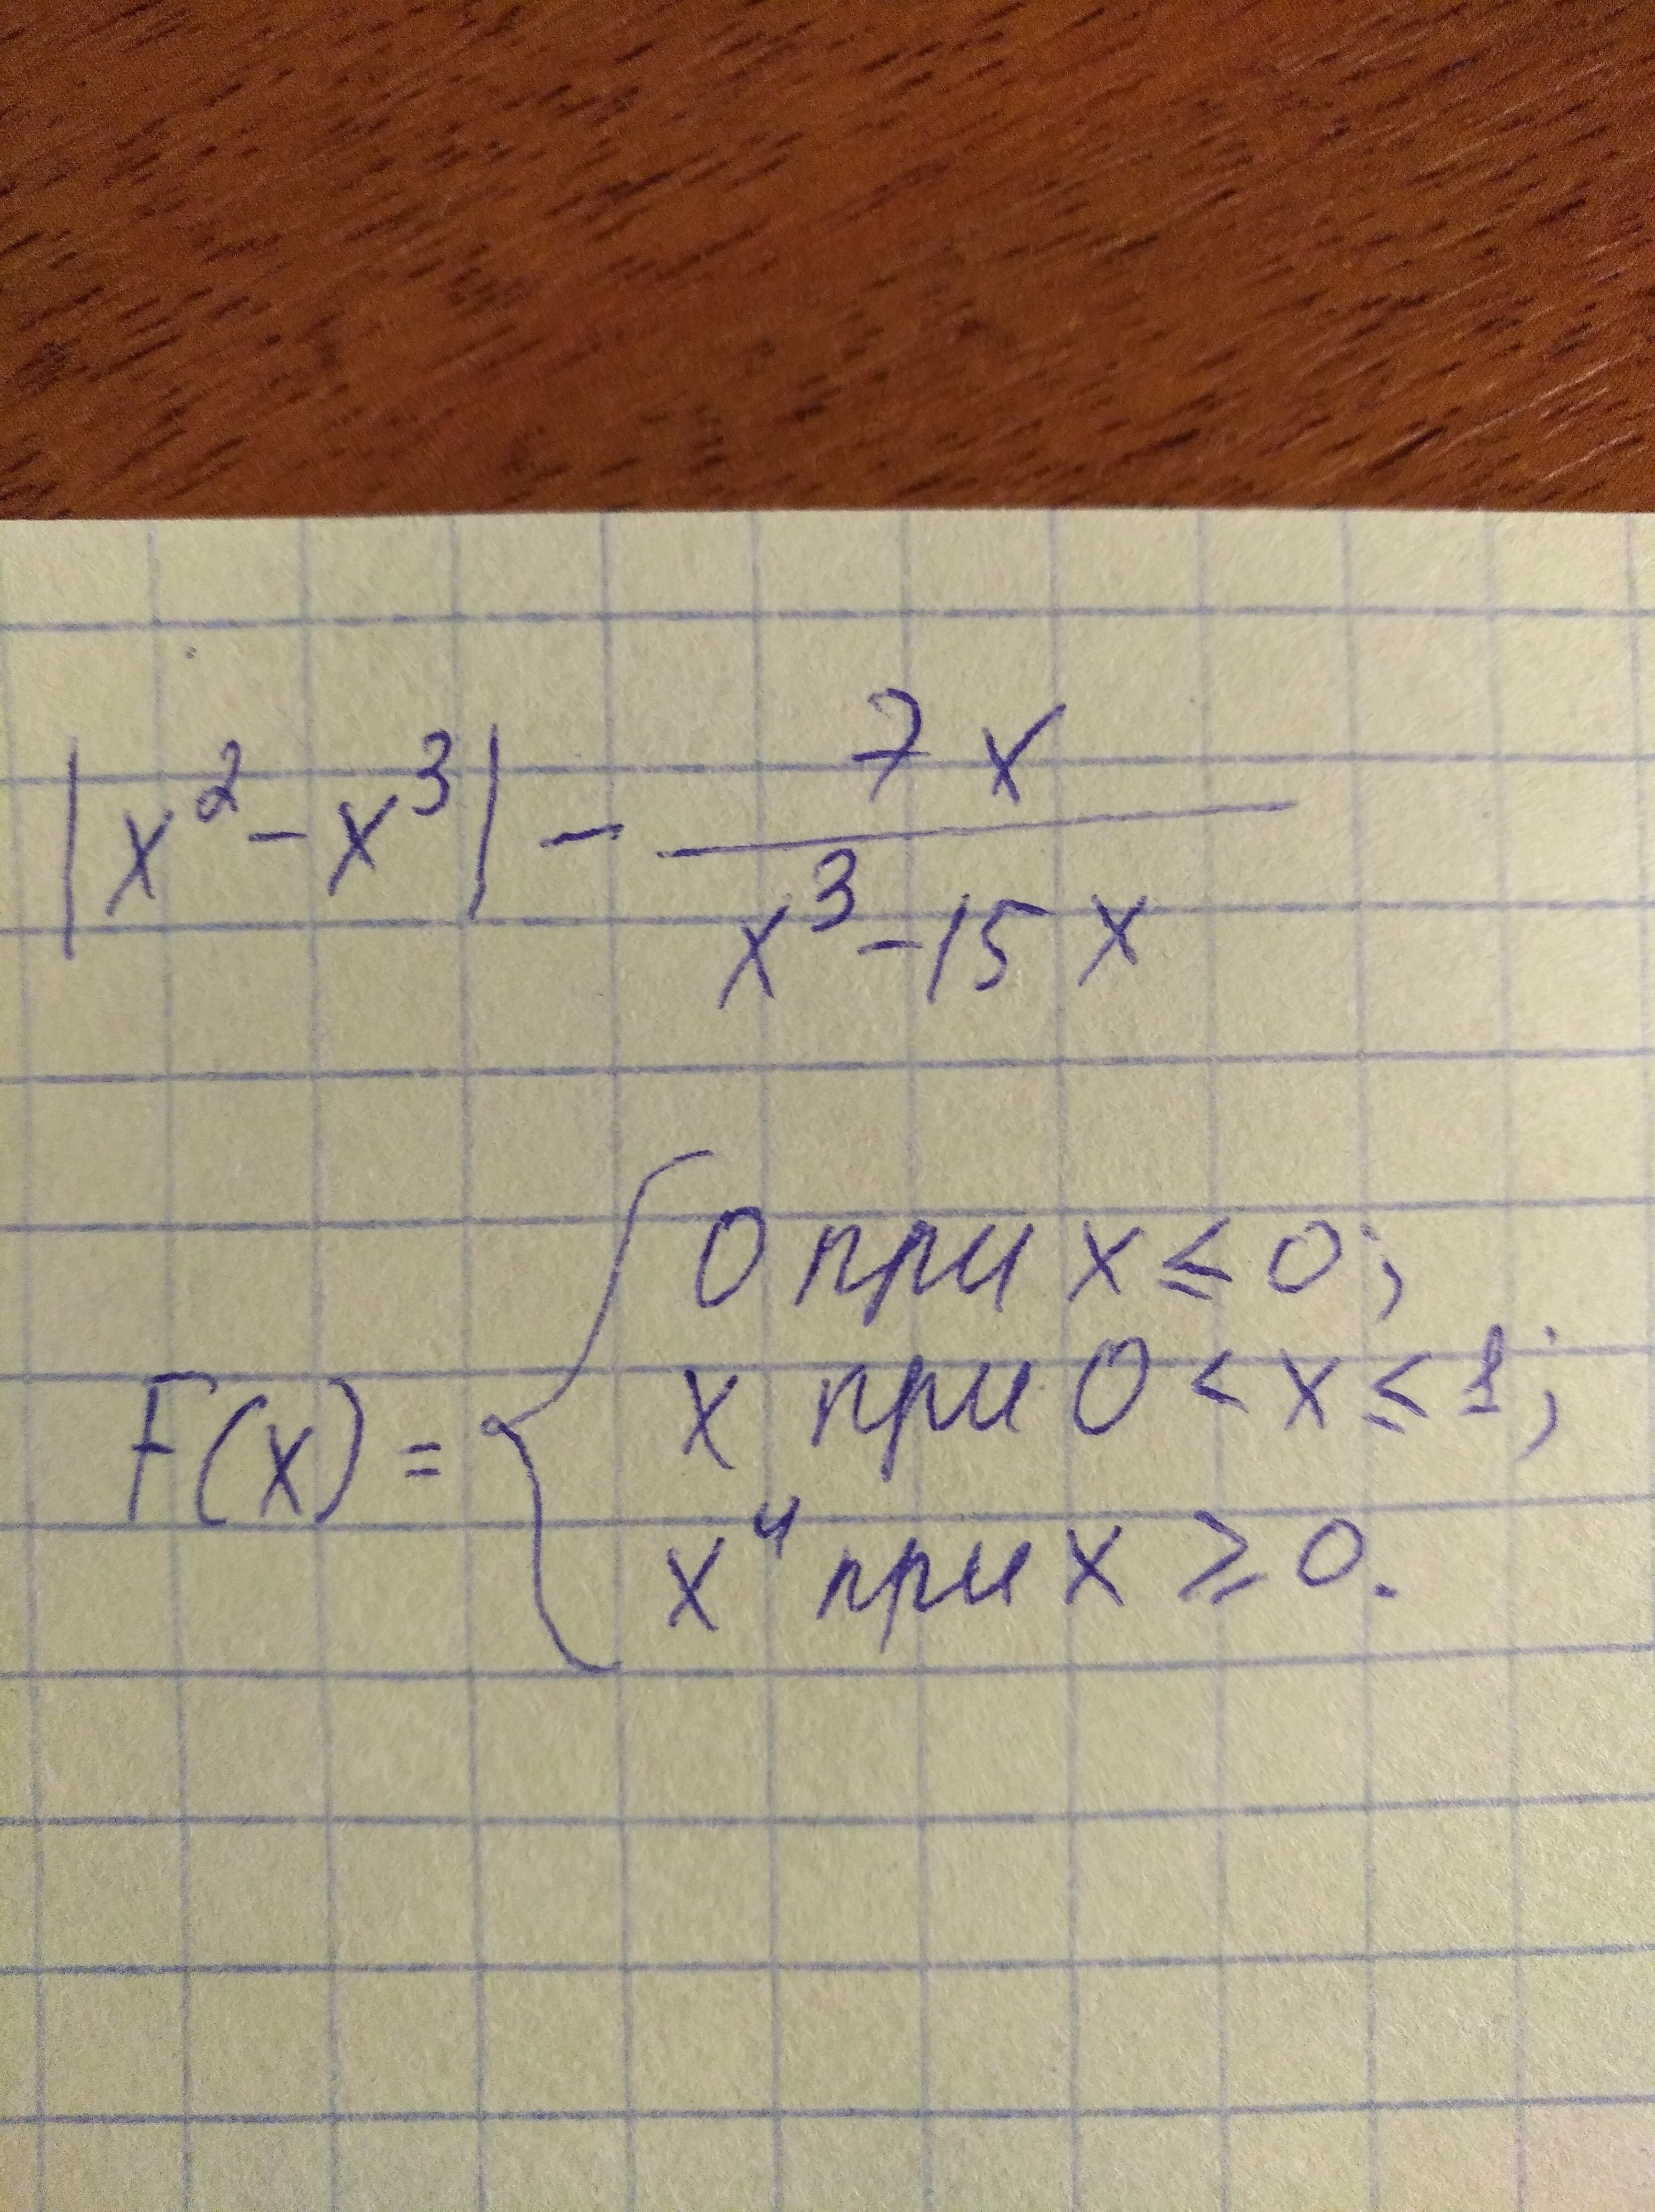 |x² - x³| - 7x / (x³ - 15x)
F(x) = { 0 при x ≤ 0;
x при 0 < x ≤ 1;
x⁴ при x ≥ 0.